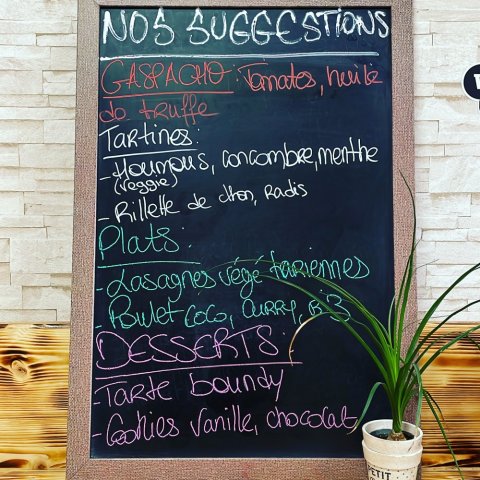 NOS SUGGESTIONS
GASPACHO : Tomates, huile
de truffe
Tartines :
- Houmous, concombre, menthe
(veggie)
- Rillette de thon, Radis
Plats :
- Lasagnes végétariennes
- Poulet coco, curry, riz
DESSERTS :
- Tarte bounty
- Cookies vanille, chocolat
PETIT